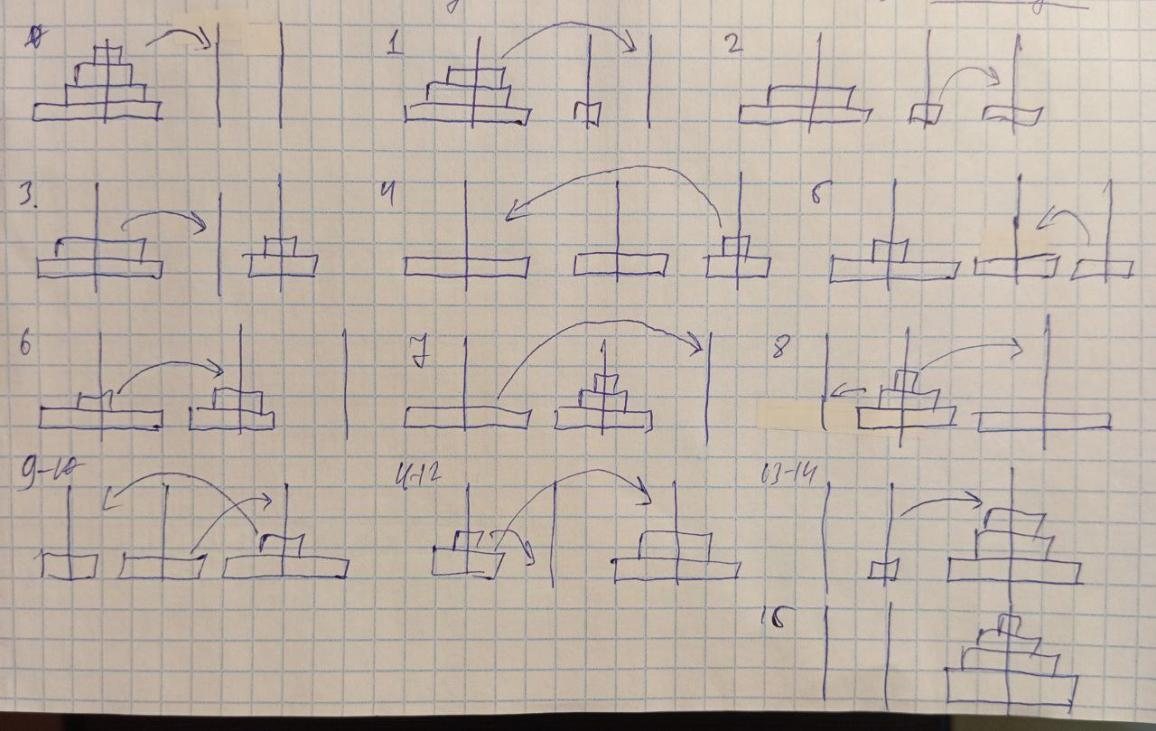 0 1 2
3. 4 5
6 7 8
9-10 11-12 13-14
15